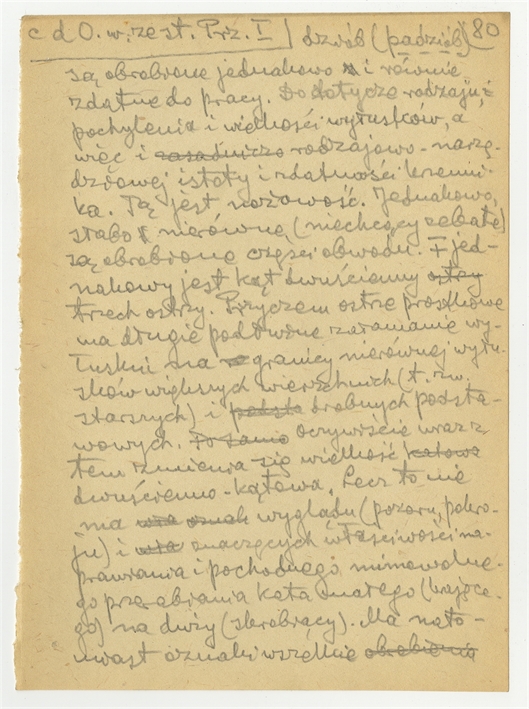 c d O. w. ze st. Prz. I dzwób (padziób) 80
są obrobione jednakowo i równie
zdatne do pracy. Do dotyczę rodzaju,
pochylenia i wielkości wyłusków, a
więc i zasadniczo rodzajowo-narzę-
dziowej istoty i zdatności krzemi-
ka. Tą jest nożowość. Jednakowo,
słabo i nierówne (niechcący zębate)
są obrobione części obwodu. I jed-
nakowy jest kąt dwuścienny ostry
trzech ostrzy. Przyczem ostrze prostkowe
ma długie podłużne załamanie wy-
łuskni na granicy nierównej wyłu-
sków większych wierzchnich (t. zw.
starszych) i drobnych podsta-
wowych. To samo Oczywiście wraz z
tem zmienia się wielkość kątowa
dwuścienno-kątowa. Lecz to nie
ma wyglądu (pozoru, pokro-
ju) i znaczących właściwości na-
prawiania i pochodnego mimowolne-
go przerabiania kąta małego (krające-
go) na duży (skrobiący). Ma nato-
miast oznaki wszelkie obrobienia